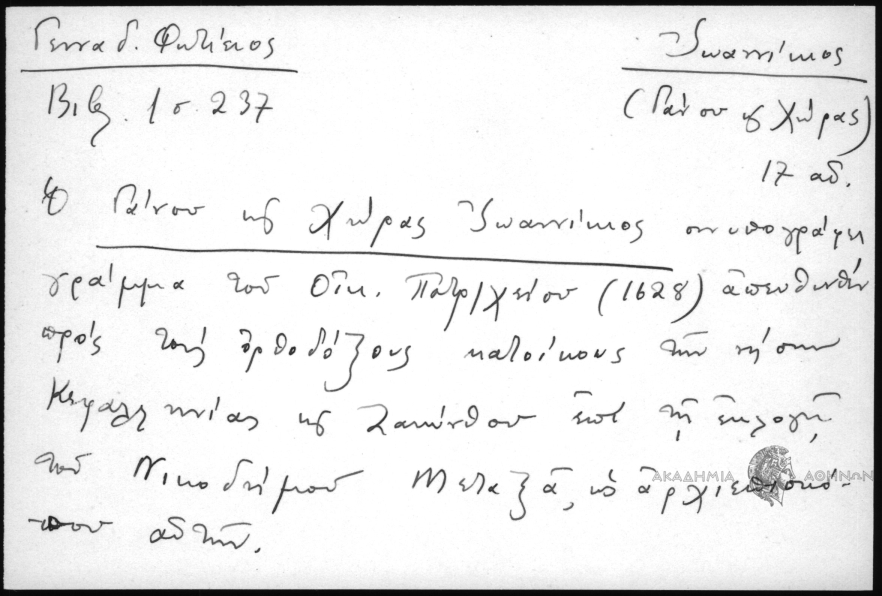 Γενναδ. Φωτίειος
Ἰωαννίκιος
Βιβλ. 1 σ. 237
(Γάνου καὶ Χώρας)
17 αἰ.
Ὁ Γάνου καὶ Χώρας Ἰωαννίκιος συνυπογράφει
γράμμα τοῦ Οἰκ. Πατρ/χείου (1628) ἀπευθυνθὲν
πρὸς τοὺς ὀρθοδόξους κατοίκους τῶν νήσων
Κεφαλληνίας καὶ Ζακύνθου ἐπὶ τῇ ἐκλογῇ
τοῦ Νικοδήμου Μεταξᾶ, ὡς ἀρχιεπισκό-
που αὐτῶν.
ΑΚΑΔΗΜΙΑ ΑΘΗΝΩΝ